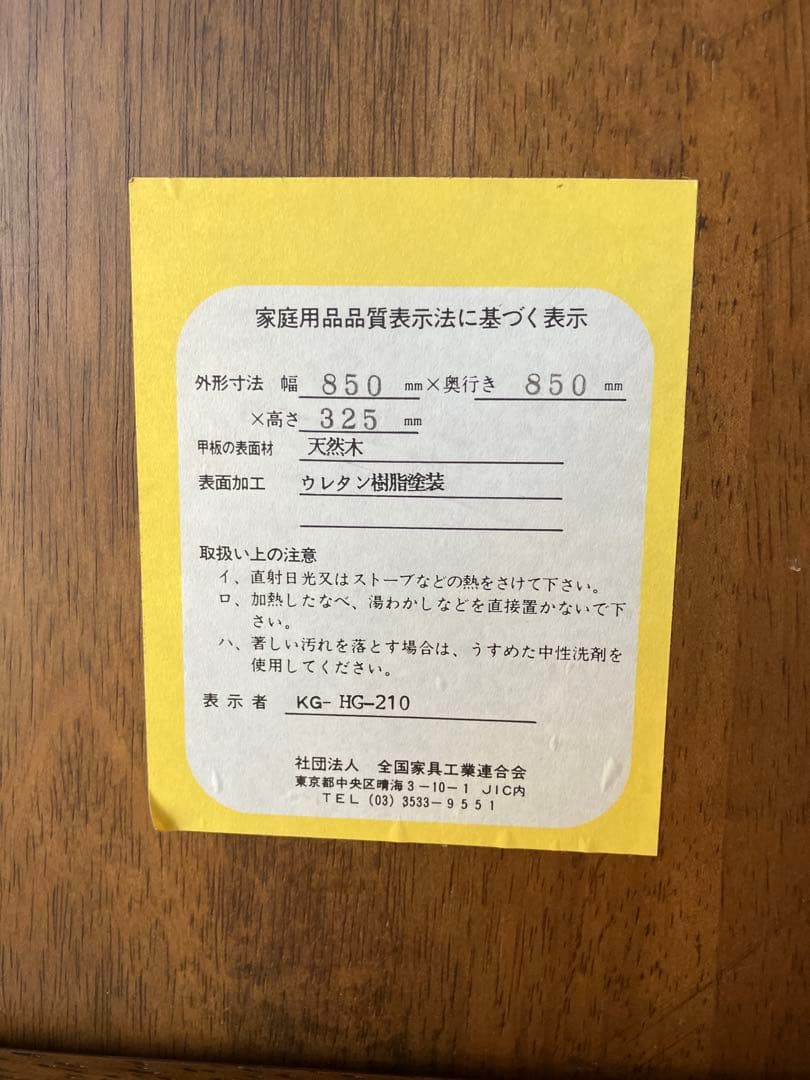 家庭用品品質表示法に基づく表示
外形寸法 幅 850 mm×奥行き 850 mm
×高さ 325 mm
甲板の表面材 天然木
表面加工 ウレタン樹脂塗装
取扱い上の注意
イ、直射日光又はストーブなどの熱をさけて下さい。
ロ、加熱したなべ、湯わかしなどを直接置かないで下
さい。
ハ、著しい汚れを落とす場合は、うすめた中性洗剤を
使用してください。
表示者 KG-HG-210
社団法人 全国家具工業連合会
東京都中央区晴海3-10-1 JIC内
TEL (03) 3533-9551